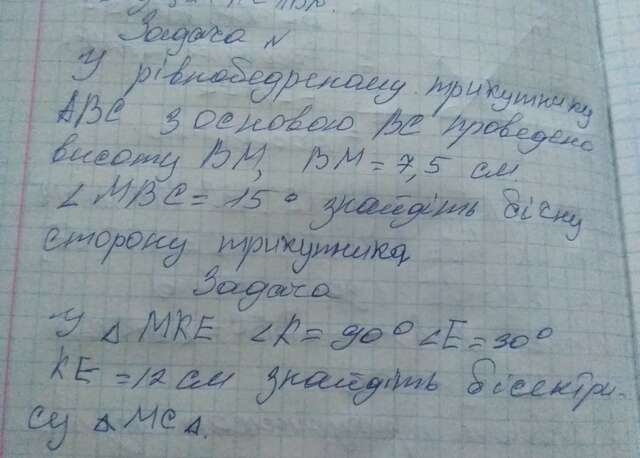 Задача N
У рівнобедреному трикутнику
АВС з основою ВС проведено
висоту ВМ, ВМ = 7,5 см
∠МВС = 15° знайдіть бічну
сторону трикутника
Задача
У △ МКЕ ∠К = 90° ∠Е = 30°
КЕ = 12 см знайдіть бісектри-
су △ МС△.